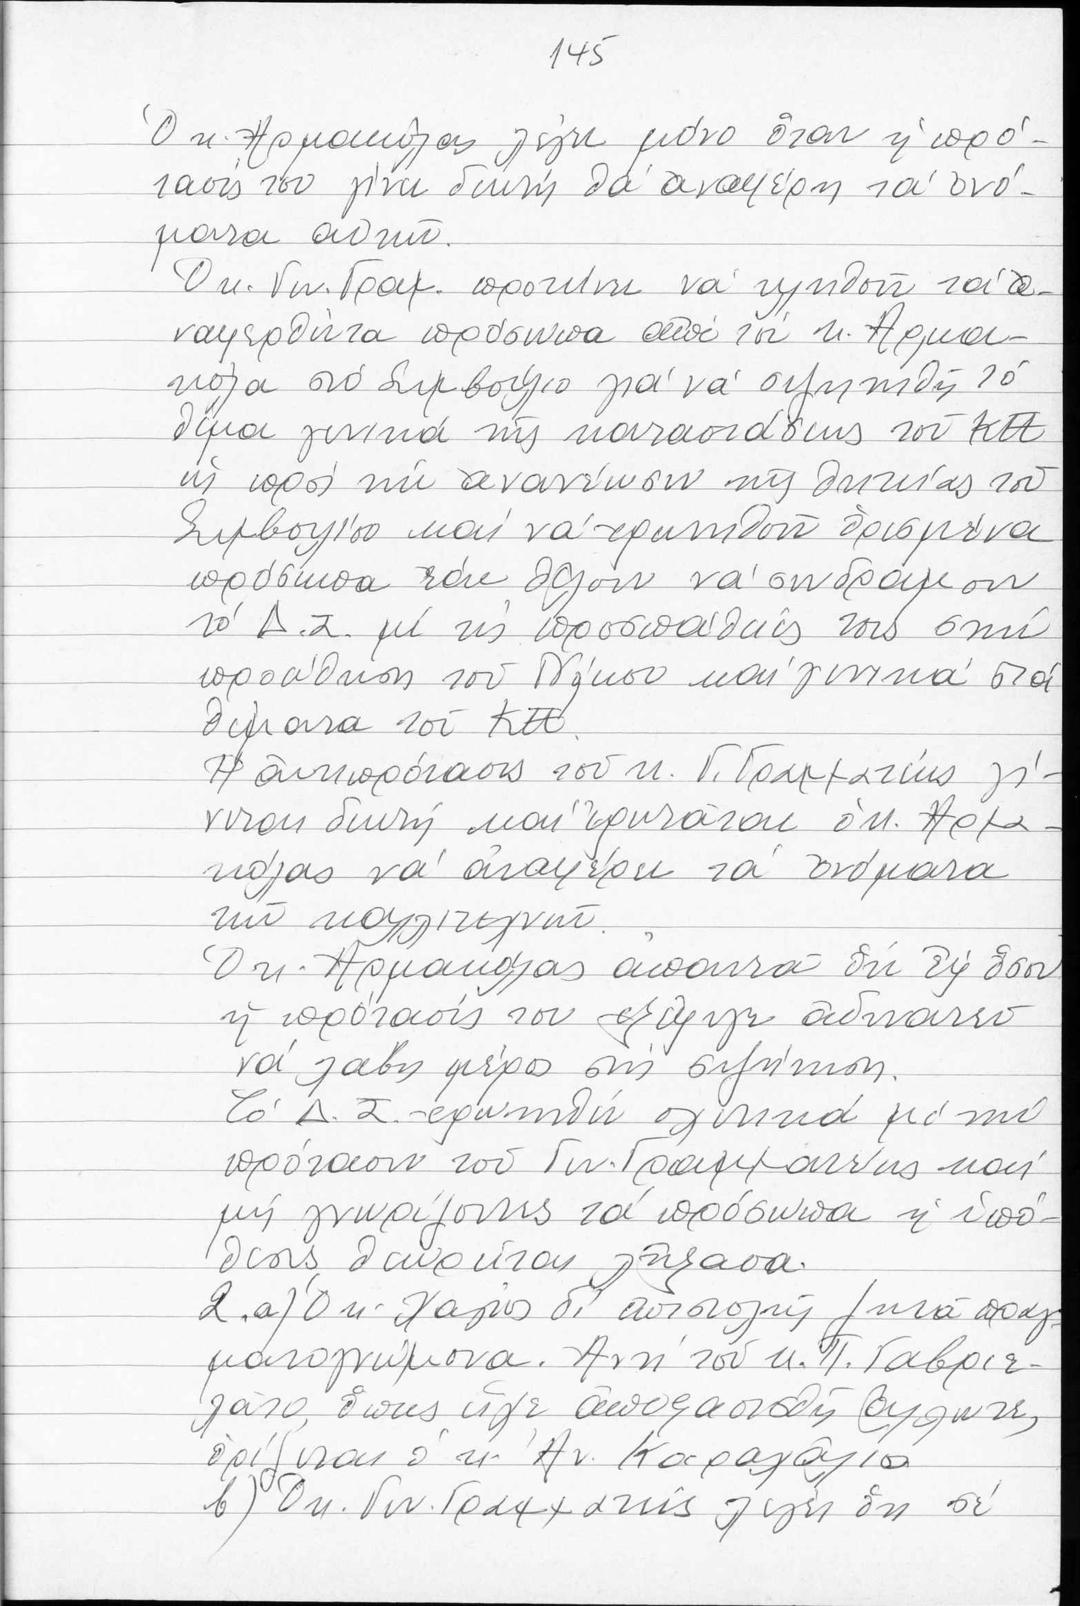 145
Ὁ κ. Ἀρμακόλας λέγει μόνο ὅταν ἡ πρό-
τασίς του γίνει δεκτή θά ἀναφέρη τά ὀνό-
ματα αὐτῶν.
Ὁ κ. Γεν. Γραμ. προτείνει νά κληθοῦν τά ἀ-
ναφερθέντα πρόσωπα ἀπό τόν κ. Ἀρμα-
κόλα στό Συμβούλιο γιά νά συζητηθῆ τό
θέμα γενικά τῆς καταστάσεως τοῦ ΚΠ
ὡς πρός τήν ἀνανέωσιν τῆς θητείας τοῦ
Συμβουλίου καί νά ἐρωτηθοῦν ὁρισμένα
πρόσωπα ἐάν θέλουν νά συνδράμουν
τό Δ.Σ. μέ τίς προσπάθειές τους στήν
προώθηση τοῦ καί γενικά στά
θέματα τοῦ ΚΠ.
Ἡ ἀντιπρότασις τοῦ κ. Γ. Γραμματέως γί-
νεται δεκτή καί ἐρωτᾶται ὁ κ. Ἀρμα-
κόλας νά ἀναφέρει τά ὀνόματα
τῶν καλλιτεχνῶν.
Ὁ κ. Ἀρμακόλας ἀπαντᾶ ὅτι ἐφ' ὅσον
ἡ πρότασίς του ἀδυνατεῖ
νά λάβη μέρος στή συζήτηση.
Τό Δ.Σ. ἐρωτηθέν σχετικά μέ τήν
πρότασιν τοῦ Γεν. Γραμματέως καί
μή γνωρίζοντες τά πρόσωπα ἡ ὑπό-
θεσις θεωρεῖται λήξασα.
2. α) Ὁ κ. δι' ἐπιστολῆς ζητᾶ πραγ-
ματογνώμονα. Ἀντί τοῦ κ. Π. Γαβριε-
λάτο, ὅπως εἶχε ἀποφασισθῆ ἄλλωτε,
ὁρίζεται ὁ κ. Ἀν.
β) Ὁ κ. Γεν. Γραμματεύς λέγει ὅτι σέ